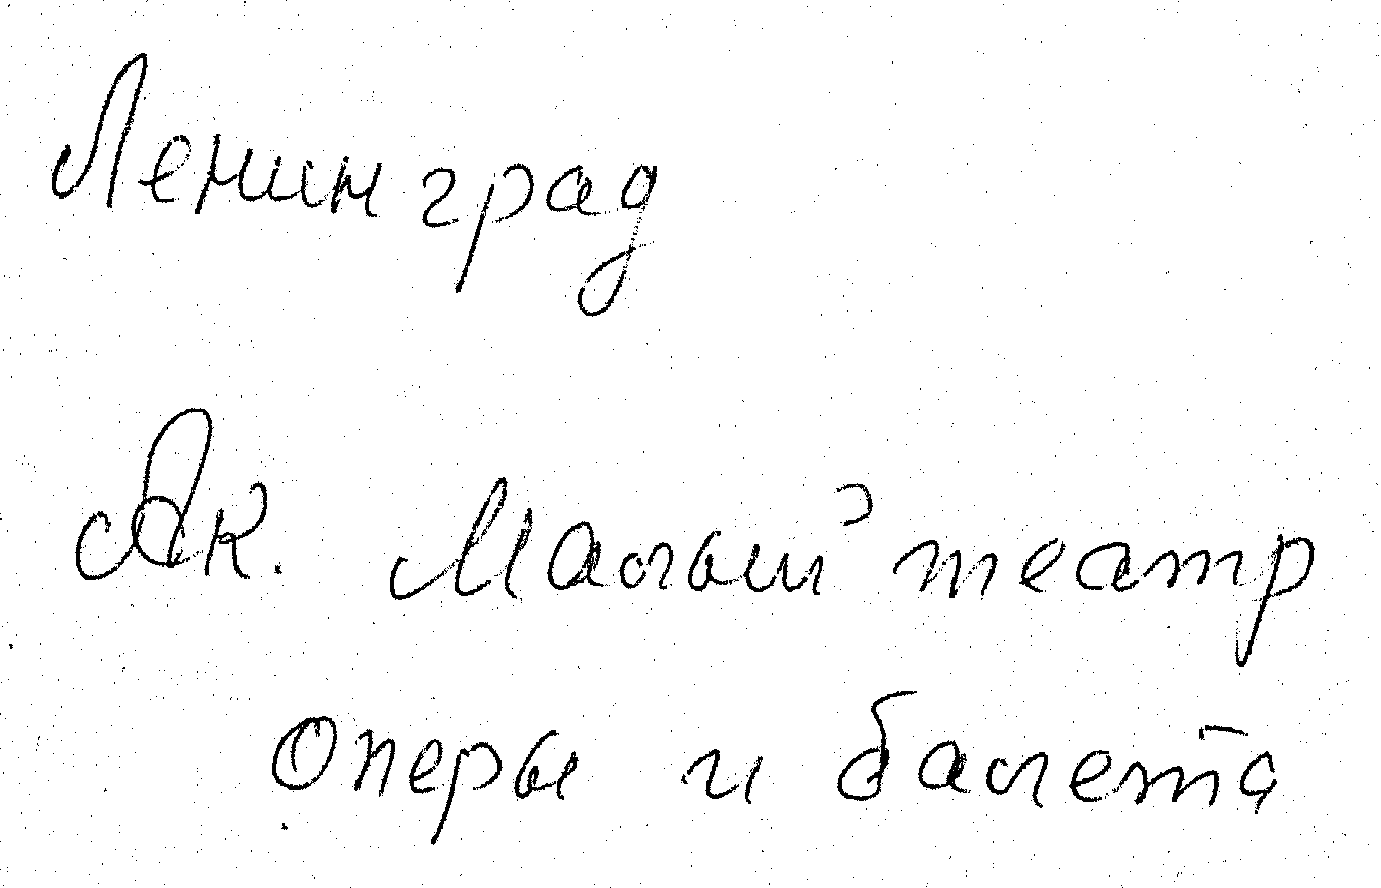 Ленинград
Ак. Малый театр
Оперы и балета